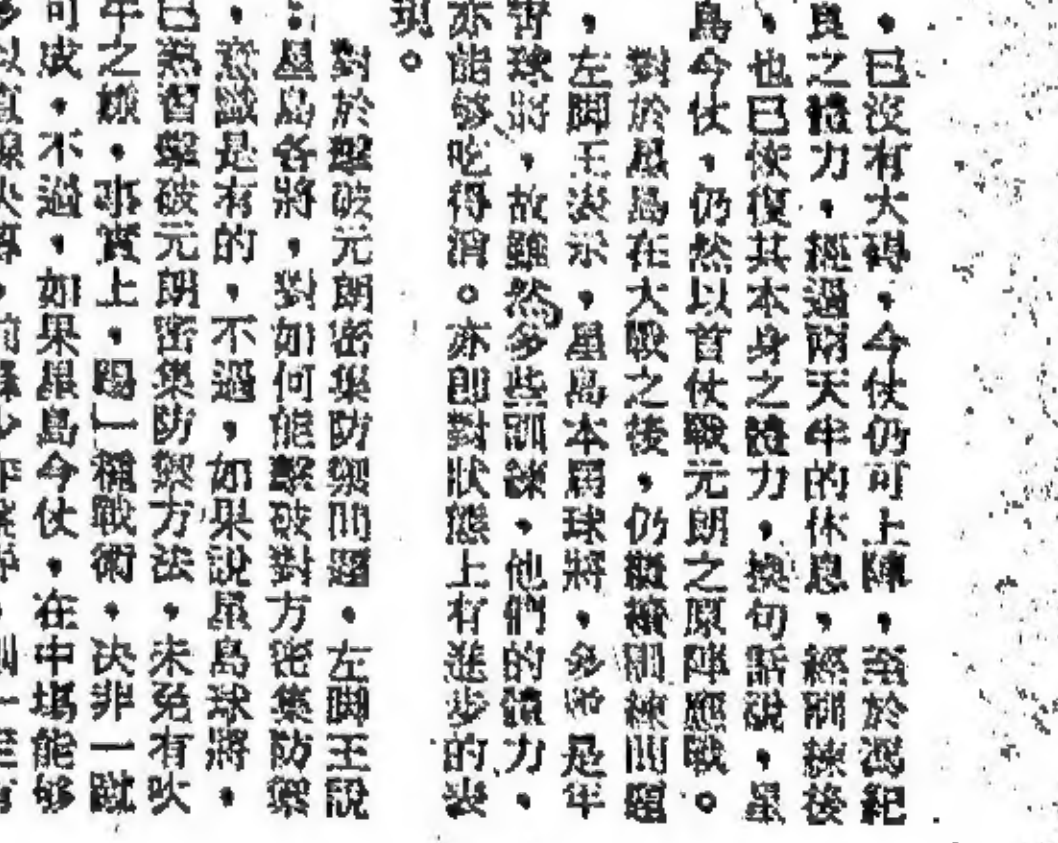 ，已沒有大碍，今仗仍可上陣，至於馮紀
良之體力，經過兩天半的休息，經訓練後
，也已恢復其本身之體力，換句話說，星
島今仗，仍然以首仗戰元朗之原陣應戰。
對於星島在大戰之後，仍積極訓練問題
，左脚王表示，星島本屬球將，多半是年
青球將，故雖然多些訓練，他們的體力，
亦能够吃得消。亦即對狀態上有進步的表
現。
對於擊破元朗密集防禦問題，左脚王說
：星島各將，對如何能擊破對方密集防禦
，意識是有的，不過，如果說星島球將，
已熟習擊破元朗密集防禦方法，未免有吹
牛之嫌，事實上，踢一種戰術，决非一蹴
可成，不過，如果星島今仗，在中塲能够